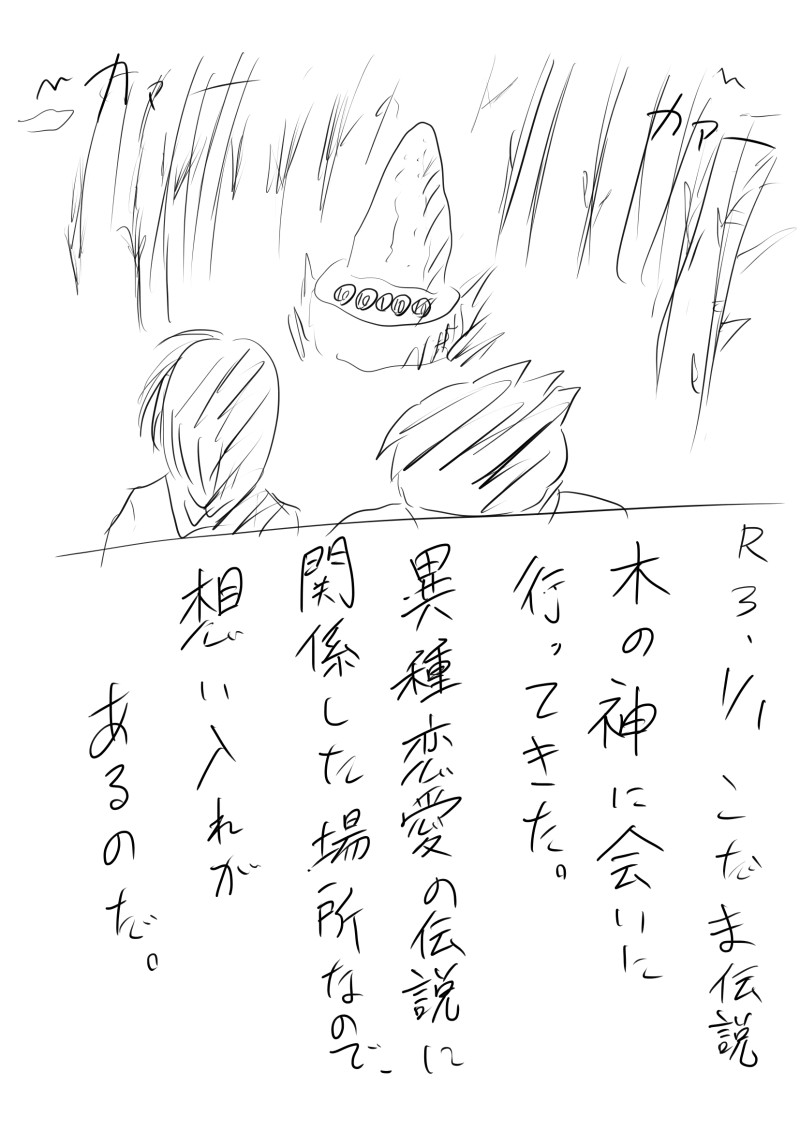 カァー
カァー
R3、1/1 こだま伝説
木の神に会いに
行ってきた。
異種恋愛の伝説に
関係した場所なので、
想い入れが
あるのだ。